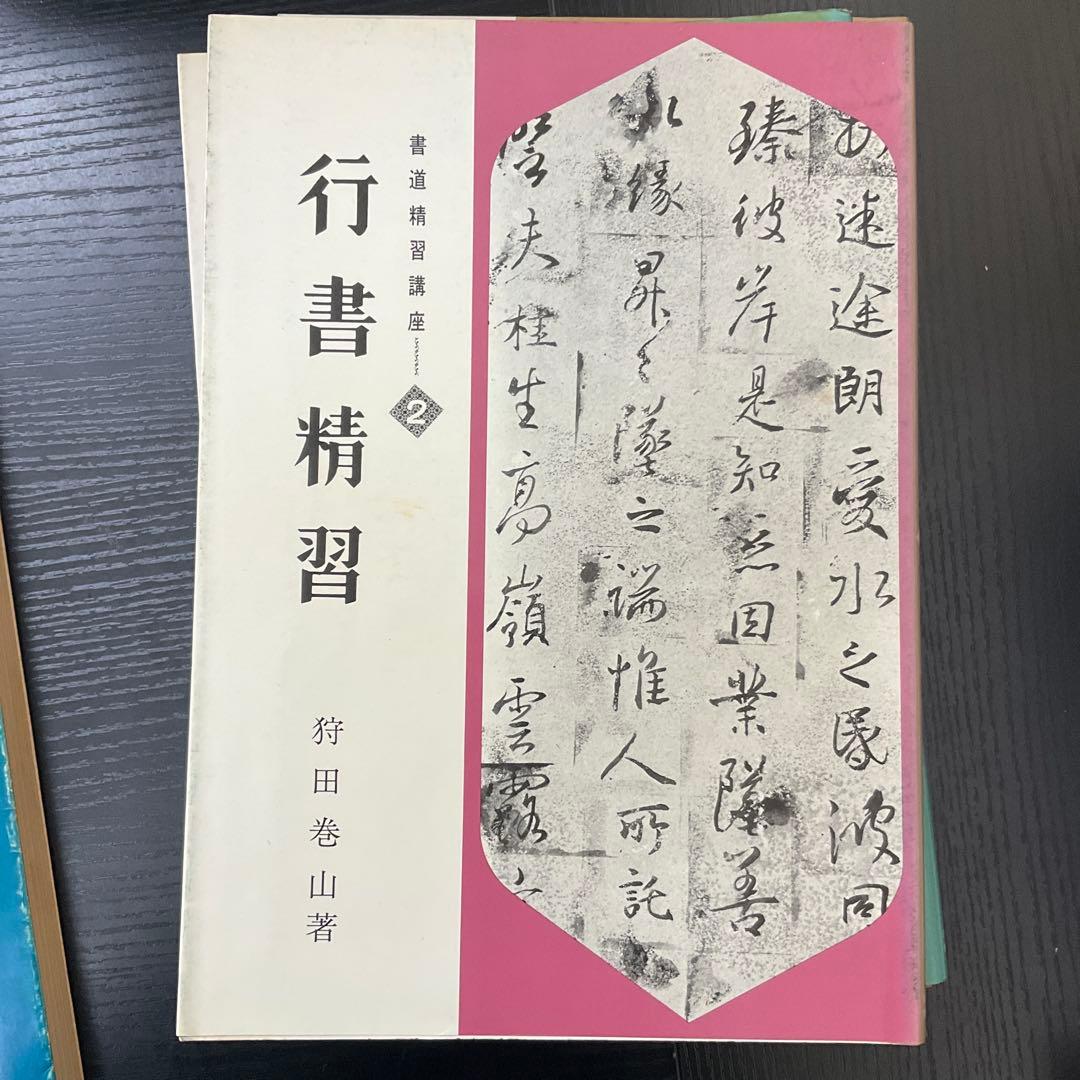 書道精習講座 2
行書精習
狩田巻山著
拔迷途朗愛水之昏波同
臻彼岸是知惡因業墜善
以緣昇々墜之端惟人所託
譬夫桂生高嶺雲露